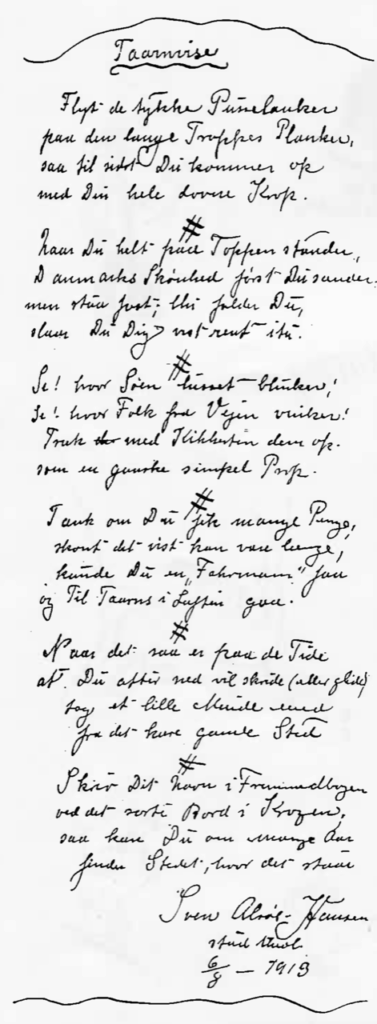 Taarnvise
Flyt de tykke Pusselanker
paa den lange Trappes Planker,
saa til sidst Du kommer op
med Din hele dovne Krop.
#
Naar Du helt paa Toppen stander,
Danmarks Skönhed först Du sander.
men staa fast; thi falder Du,
slaar Du Dig vist rent itu.
#
Se! hvor Söen lusset blinker!
Se! hvor Folk fra Vejen vinker!
Træk med Kikkerten dem op.
som en ganske simpel Prop.
#
Tænk om Du fik mange Penge,
skönt det vist kan vare længe,
kunde Du en "Fahrmann" faa
og til Taarns i Luften gaa.
#
Naar det saa er paa de Tide
at Du atter ned vil skride (eller glide)
tag et lille Minde med
fra det kære gamle Sted
#
Skriv Dit Navn i Fremmedbogen
ved det sorte Bord i Krogen,
saa kan Du om mange Aar
finde Stedet, hvor det staar
Sven Hansen
stud
6/8 – 1913